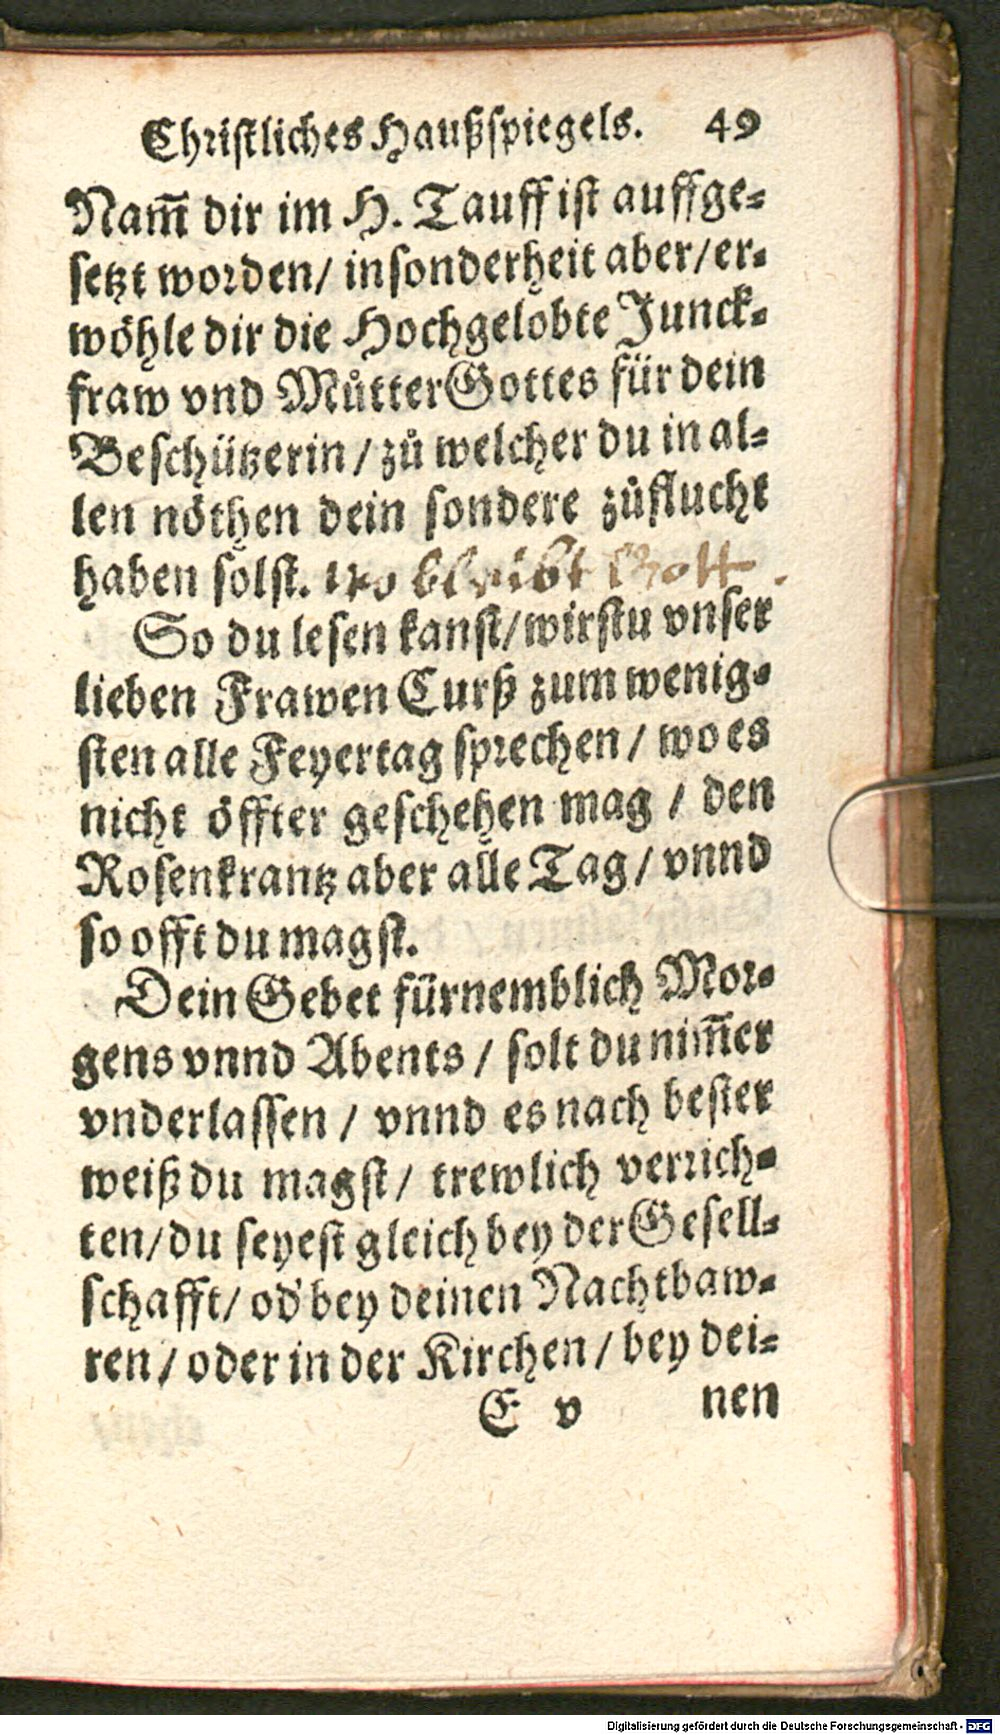 Christliches Haußspiegels. 49
Nam̃ dir im H. Tauff ist auffge-
setzt worden/ insonderheit aber/ er-
wöhle dir die Hochgelobte Junck-
fraw vnd Můtter Gottes für dein
Beschützerin/ zů welcher du in al-
len nöthen dein sondere zůflucht
haben solst. wo bleibt Gott.
So du lesen kanst/ wirstu vnser
lieben Frawen Curß zum wenig-
sten alle Feyertag sprechen/ wo es
nicht öffter geschehen mag/ den
Rosenkrantz aber alle Tag/ vnnd
so offt du magst.
Dein Gebet fürnemblich Mor-
gens vnnd Abents/ solt du nim̃er
vnderlassen/ vnnd es nach bester
weiß du magst/ trewlich verrich-
ten/ du seyest gleich bey der Gesell-
schafft/ od' bey deinen Nachtbaw-
ren/ oder in der Kirchen/ bey dei-
E v nen
Digitalisierung gefördert durch die Deutsche Forschungsgemeinschaft - DFG